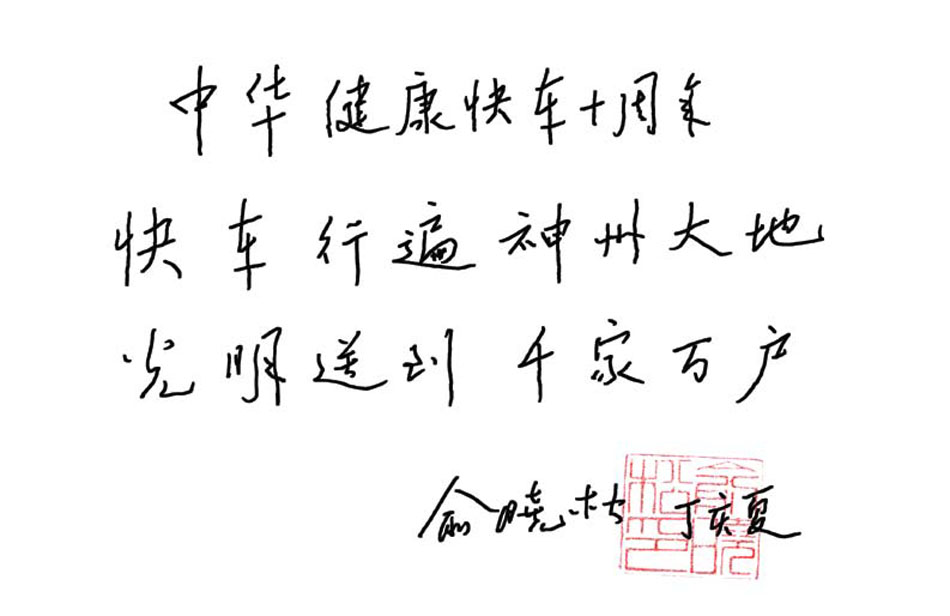 中华健康快车十周年
快车行遍神州大地
光明送到千家万户
俞晓松 丁亥夏